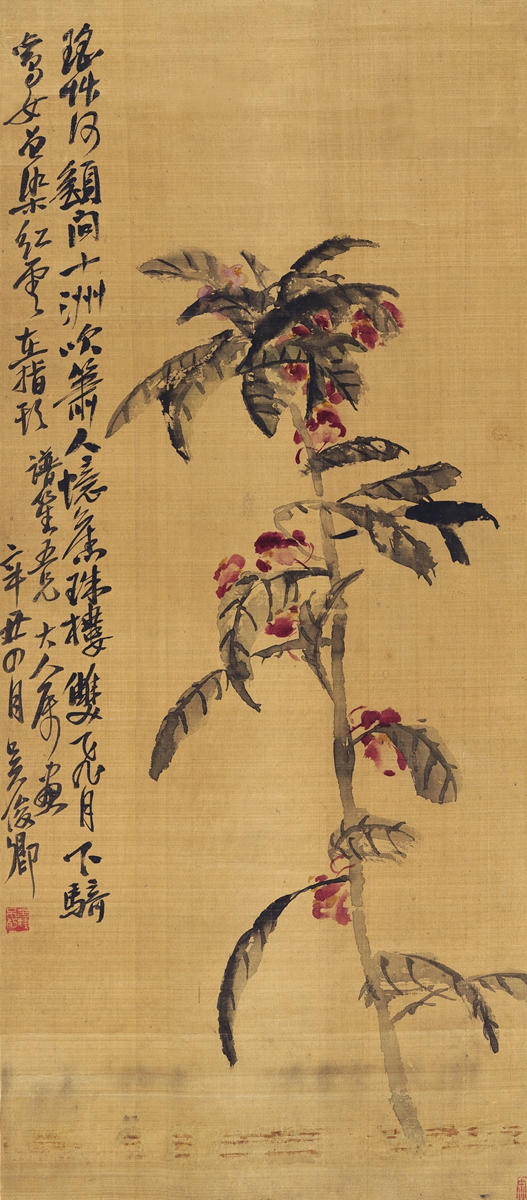 瑤艸何須問十洲吹簫人憶舊珠樓雙飛月下騎
鸞女曾染紅雲在指頭
譜笙五兄大人屬畫
辛丑四月吳俊卿